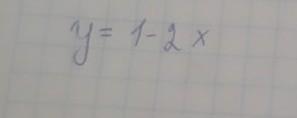 y = 1 - 2 x